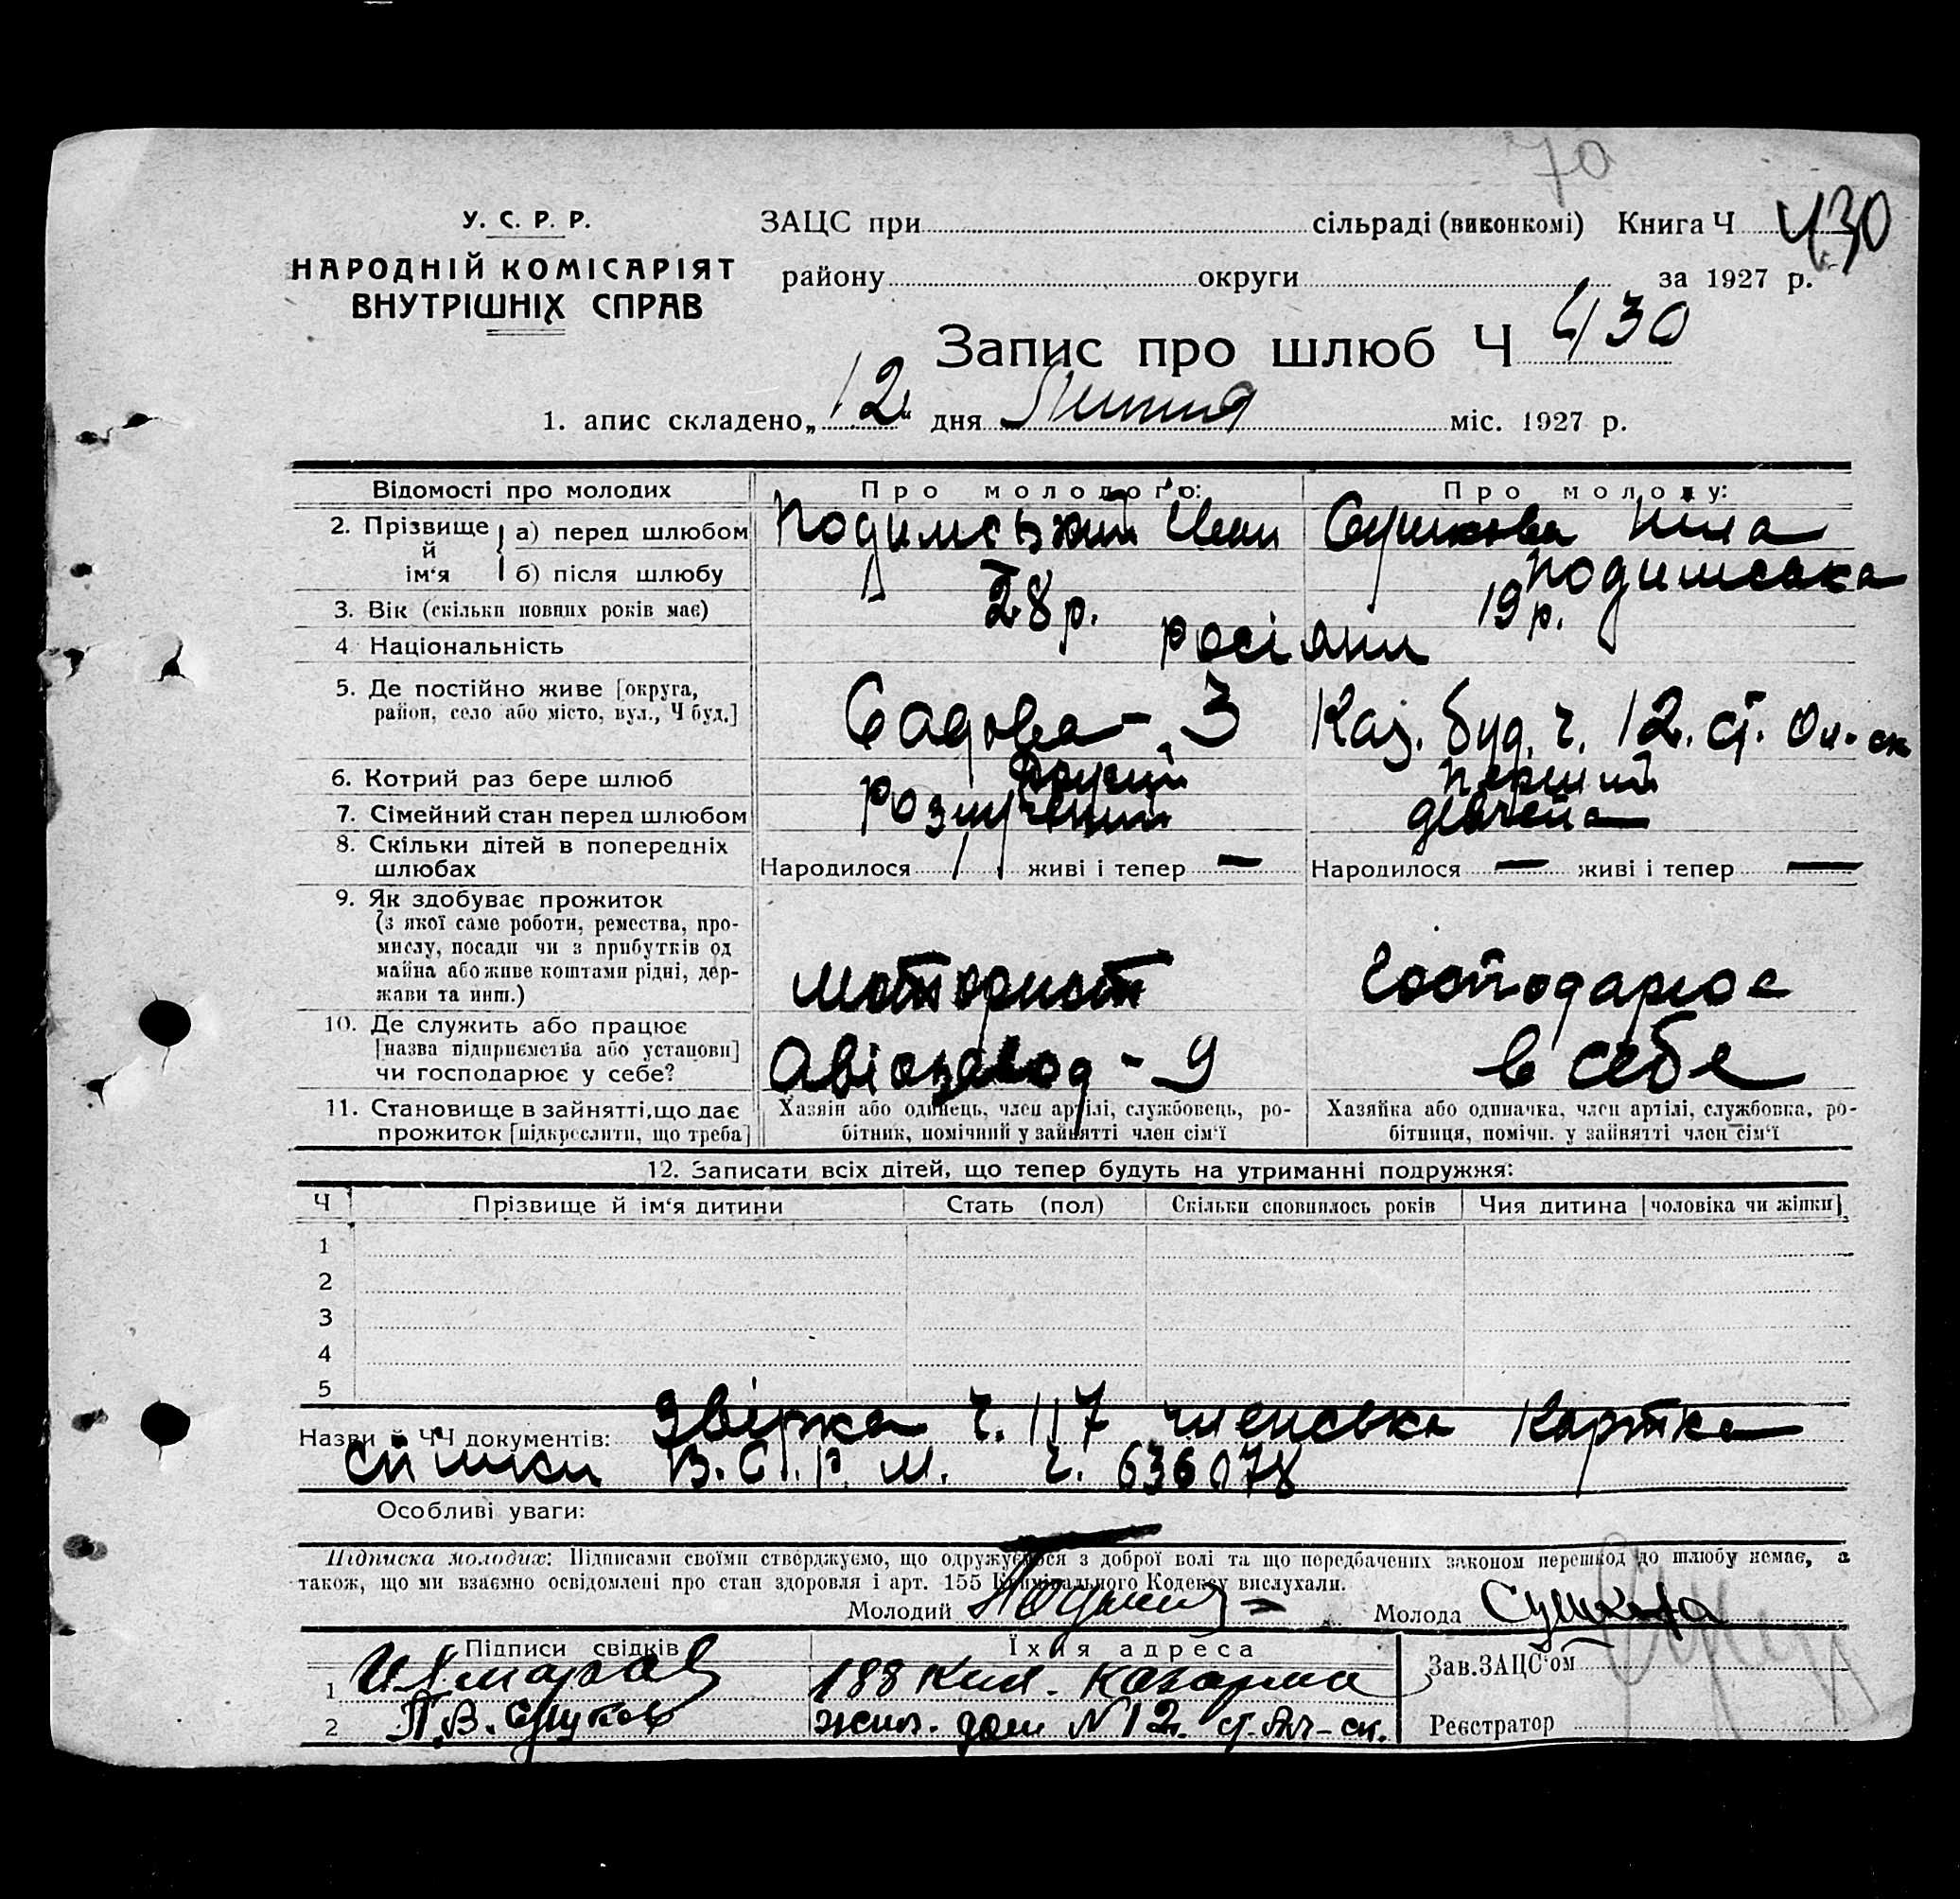 70
У. С. Р. Р.
НАРОДНІЙ КОМІСАРІЯТ
ВНУТРІШНІХ СПРАВ
ЗАЦС при сільраді (виконкомі) Книга Ч 430
району округи за 1927 р.
Запис про шлюб Ч 430
1. апис складено „12“ дня Липня міс. 1927 р.
Відомості про молодих Про молодого: Про молоду:
2. Прізвище й ім‘я а) перед шлюбом Подимський Сушкова Ніна
б) після шлюбу Подимська
3. Вік (скільки повних років має) 28 р. 19 р.
4. Національність росіяни
5. Де постійно живе [округа, район, село або місто, вул., Ч буд.] Садова - 3 Каз. буд. ч. 12. ст.
6. Котрий раз бере шлюб Другий перший
7. Сімейний стан перед шлюбом Розлучений дівчина
8. Скільки дітей в попередніх шлюбах Народилося живі і тепер — Народилося — живі і тепер —
9. Як здобуває прожиток
(з якої саме роботи, ремества, промислу, посади чи з прибутків од майна або живе коштами рідні, держави та инш.) моторист Господарює
10. Де служить або працює [назва підприємства або установи] чи господарює у себе? Авіозавод - 9 в себе
11. Становище в зайнятті, що дає прожиток [підкреслити, що треба] Хазяїн або одинець, член артілі, службовець, робітник, помічний у зайнятті член сім‘ї Хазяйка або одиначка, член артілі, службовка, робітниця, помічн. у зайнятті член сім‘ї
12. Записати всіх дітей, що тепер будуть на утриманні подружжя:
Ч Прізвище й ім‘я дитини Стать (пол) Скільки сповнилось років Чия дитина [чоловіка чи жінки]
1
2
3
4
5
Назви й ЧЧ документів: Звірка ч. 117 членська картка
спілки В.С.Р.М. ч. 636078
Особливі уваги:
Підписка молодих: Підписами своїми стверджуємо, що одружуємося з доброї волі та що передбачених законом перешкод до шлюбу немає, а
також, що ми взаємно освідомлені про стан здоровля і арт. 155 Кримінального Кодексу вислухали.
Молодий Молода Сушкова
Підписи свідків Їхня адреса Зав.ЗАЦС‘ом
1 188 казарма
2 П.В. Сушков жил. дом N 12. ст. Реєстратор